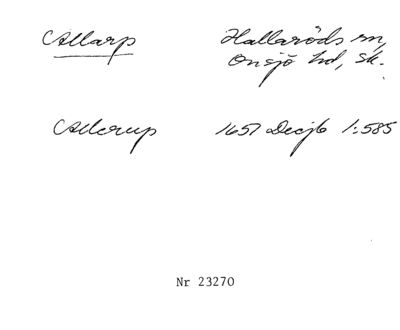 Allarp Hallaröds sn,
Onsjö hd, Sk.
Allerup 1657 Decjb 1:585
Nr 23270